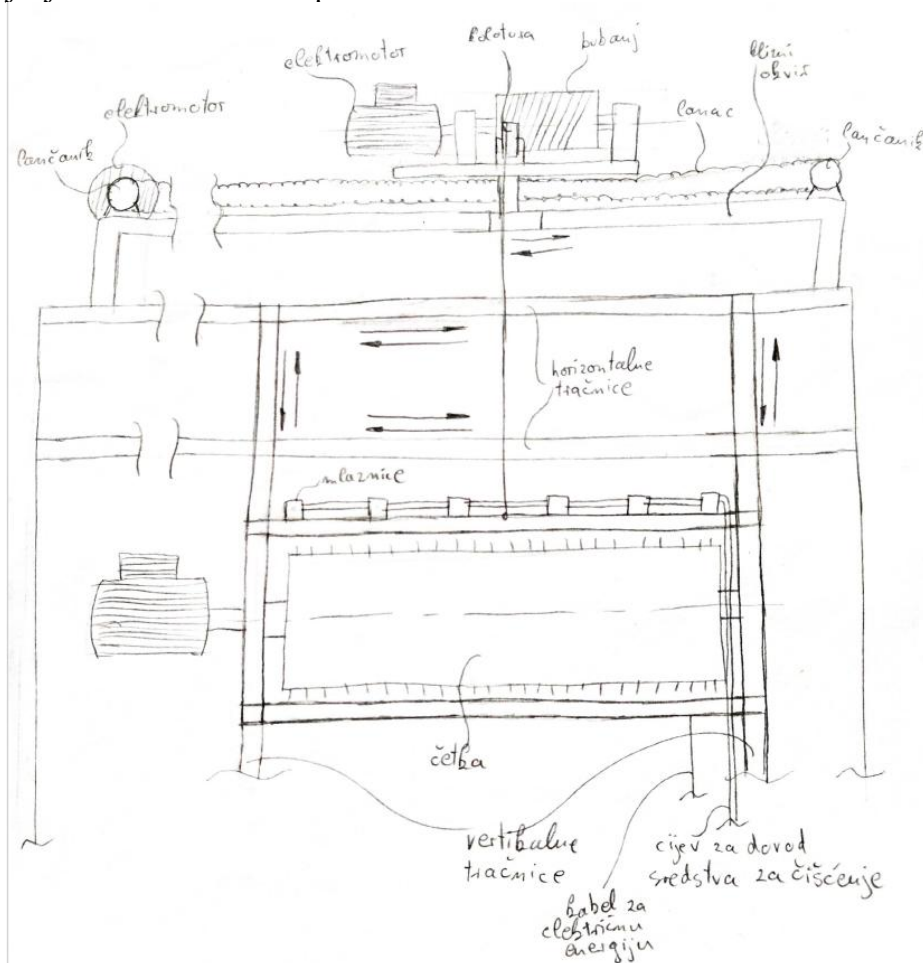 elektromotor
kolotura
bubanj
klizni
okvir
elektromotor
lančanik
lanac
lančanik
horizontalne
tračnice
mlaznice
četka
vertikalne
tračnice
cijev za dovod
sredstva za čišćenje
kabel za
električnu
energiju